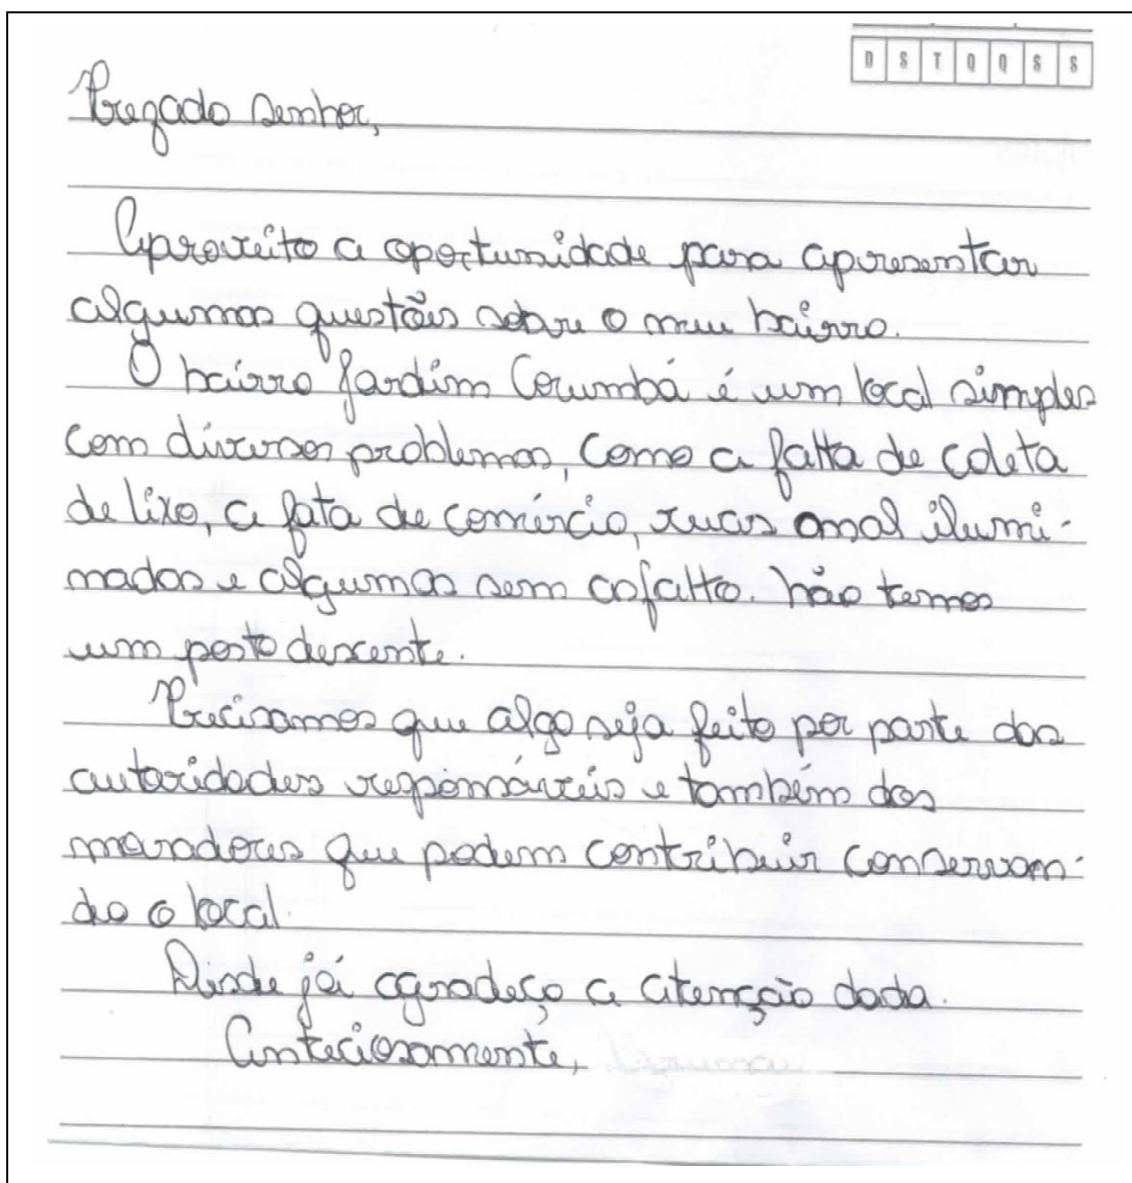 D S T Q Q S S
Prezado senhor,
Aproveito a oportunidade para apresentar
algumas questões sobre o meu bairro.
O bairro Jardim Corumbá é um local simples
com diversos problemas, como a falta de coleta
de lixo, a fata de comércio, ruas mal ilumi-
nadas e algumas sem asfalto. não temos
um posto descente.
Precisamos que algo seja feito por parte das
autoridades responsáveis e também dos
moradores que podem contribuir conservan-
do o local.
Desde já agradeço a atenção dada.
Anteciosamente,